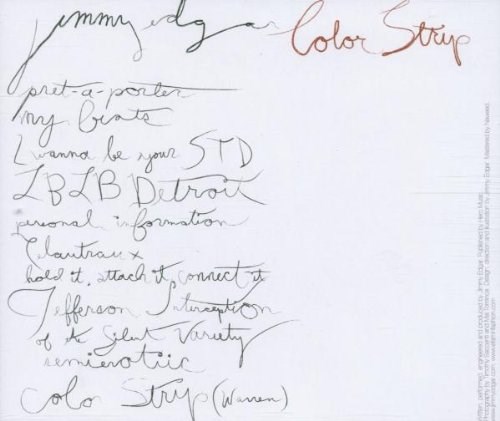 jimmy edgar Color Strip
pret-a-porter
my beats
I wanna be your STD
LBLB Detroit
personal information
Clautraux
hold it, attach it, connect it
Jefferson Interception
of the Silent Variety
semierotiic
Color Strip (Warren)